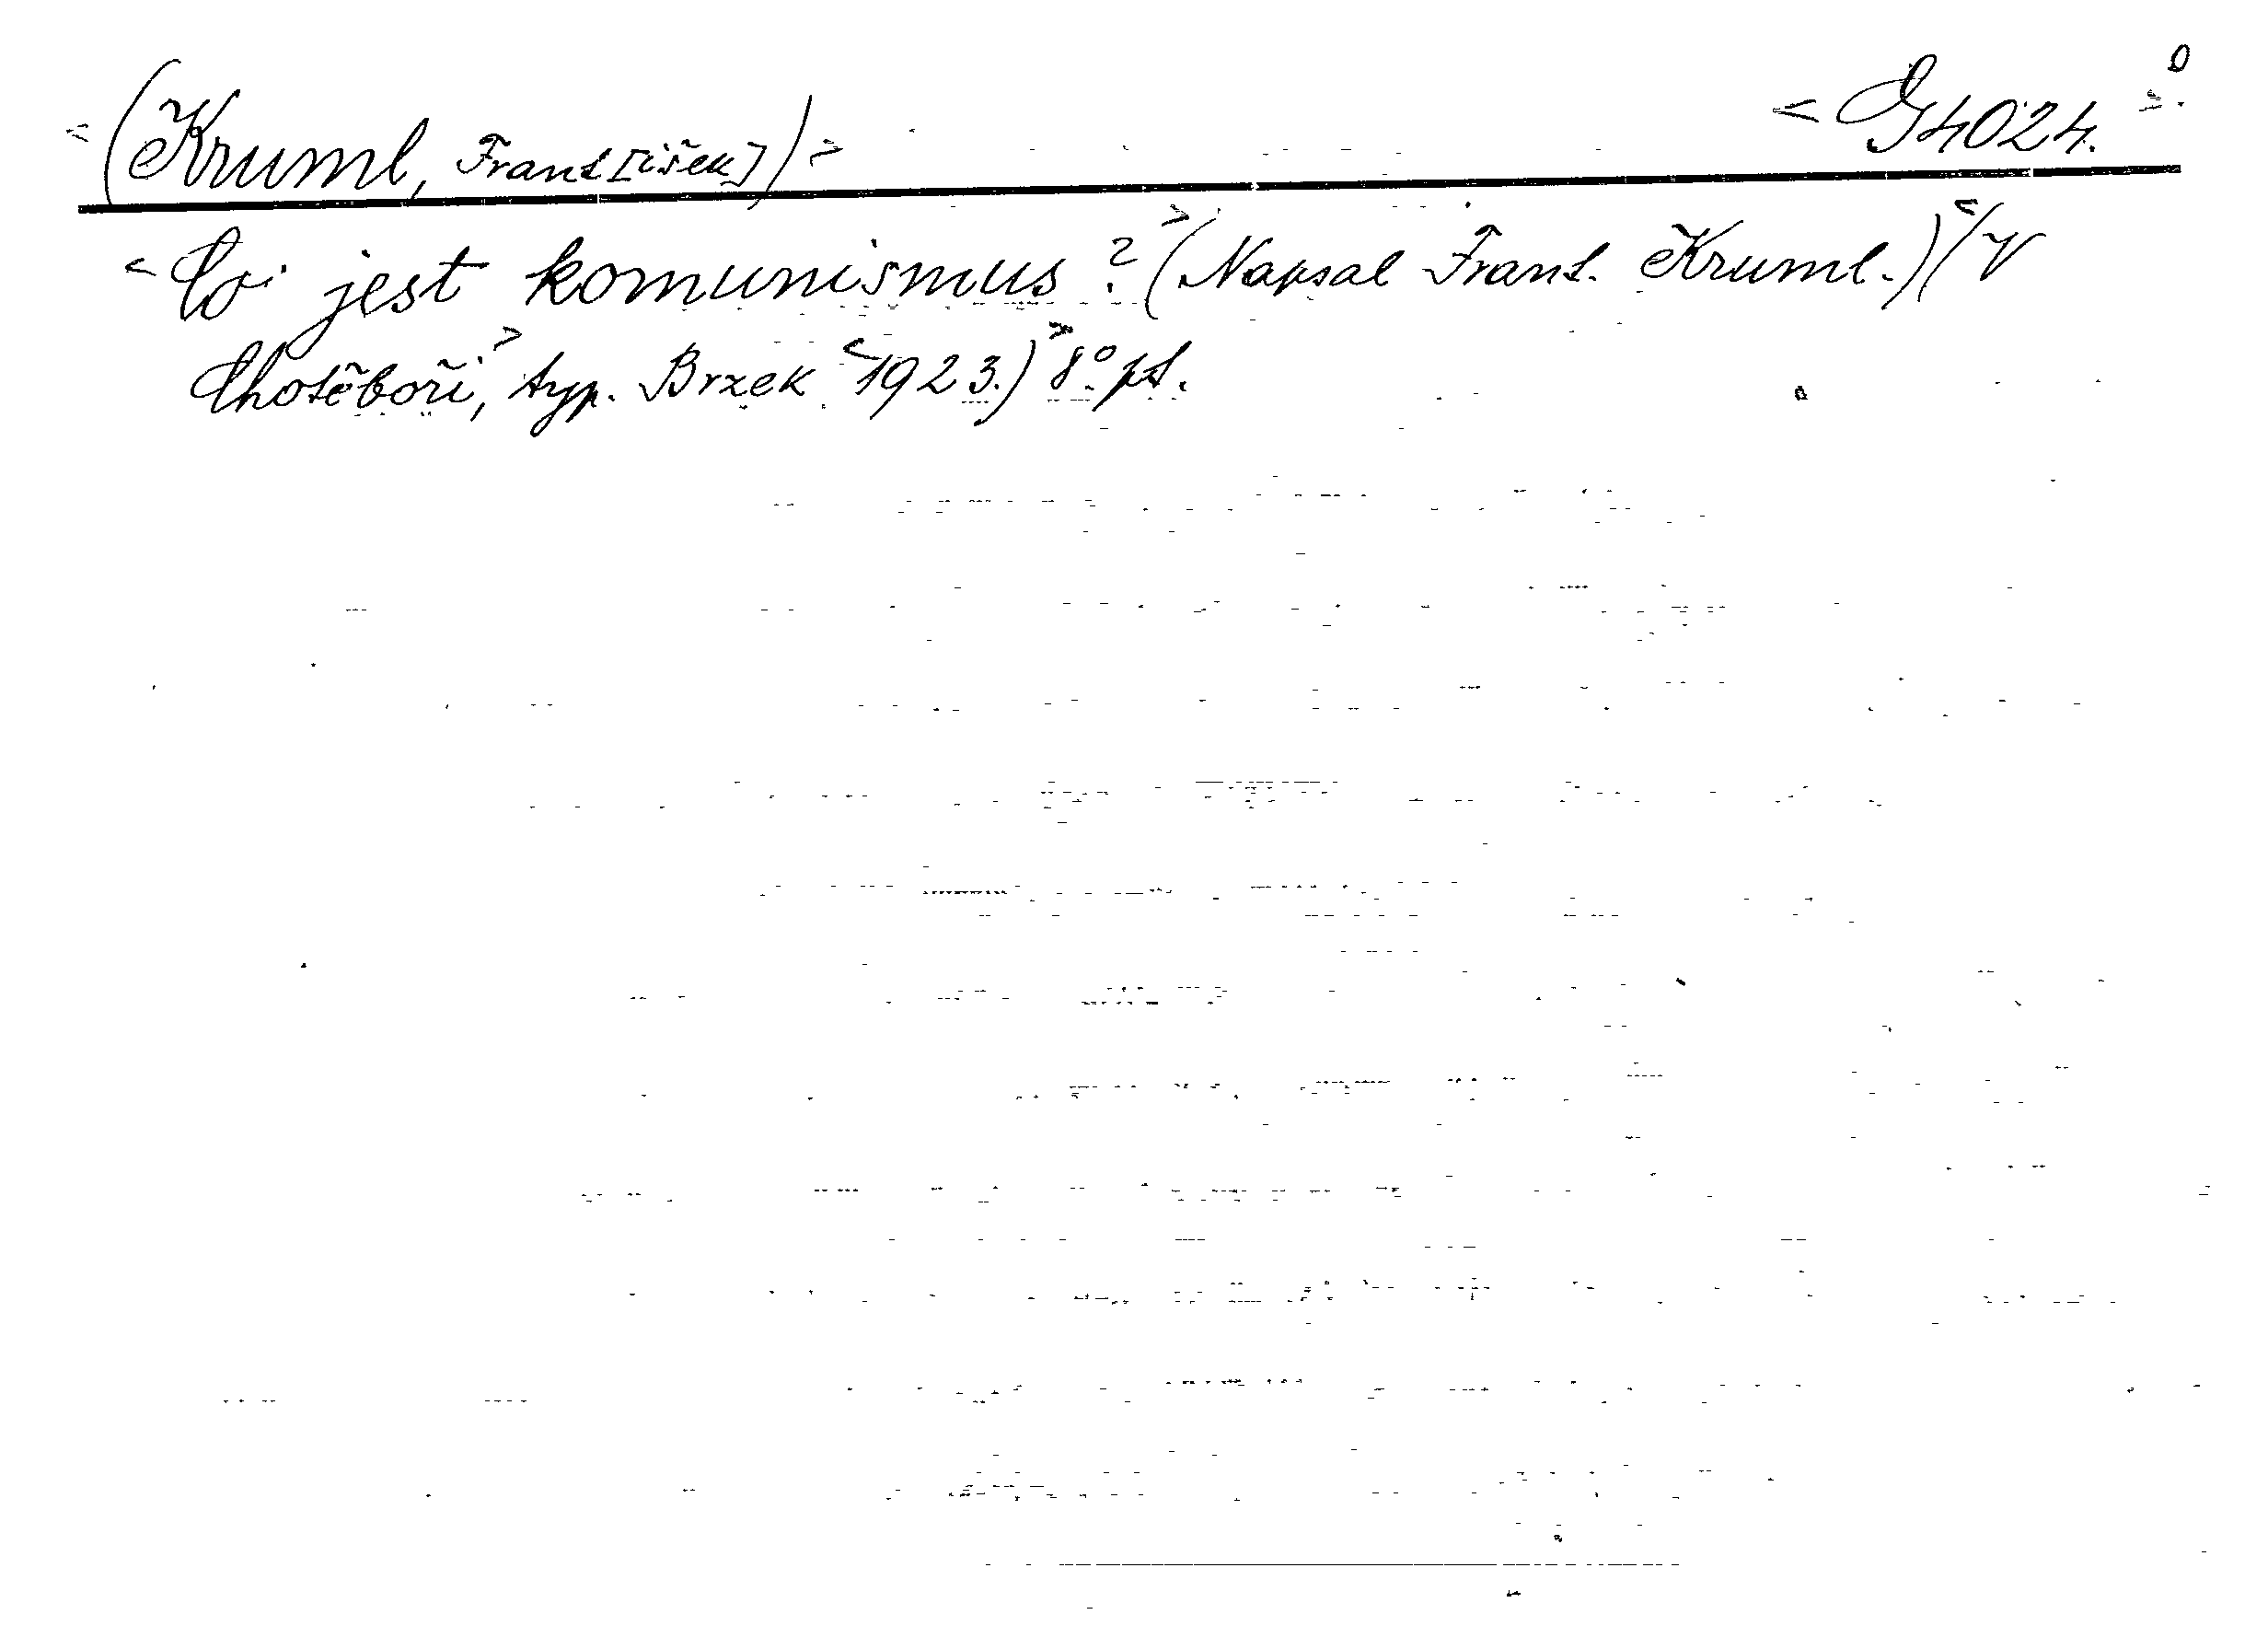 <(Kruml, Frant[išek])> <G 4024.
<Co jest komunismus?> (Napsal Frant. Kruml.) <(V
Chotěboři,> typ. Brzek <1923.)> 8° pt.